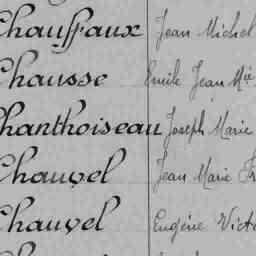 Chauffaux Jean Michel
Chausse Emile Jean Mie
Chanthoiseau Joseph Marie
Chauvel Jean Marie Fr
Chauvel Eugène Victo